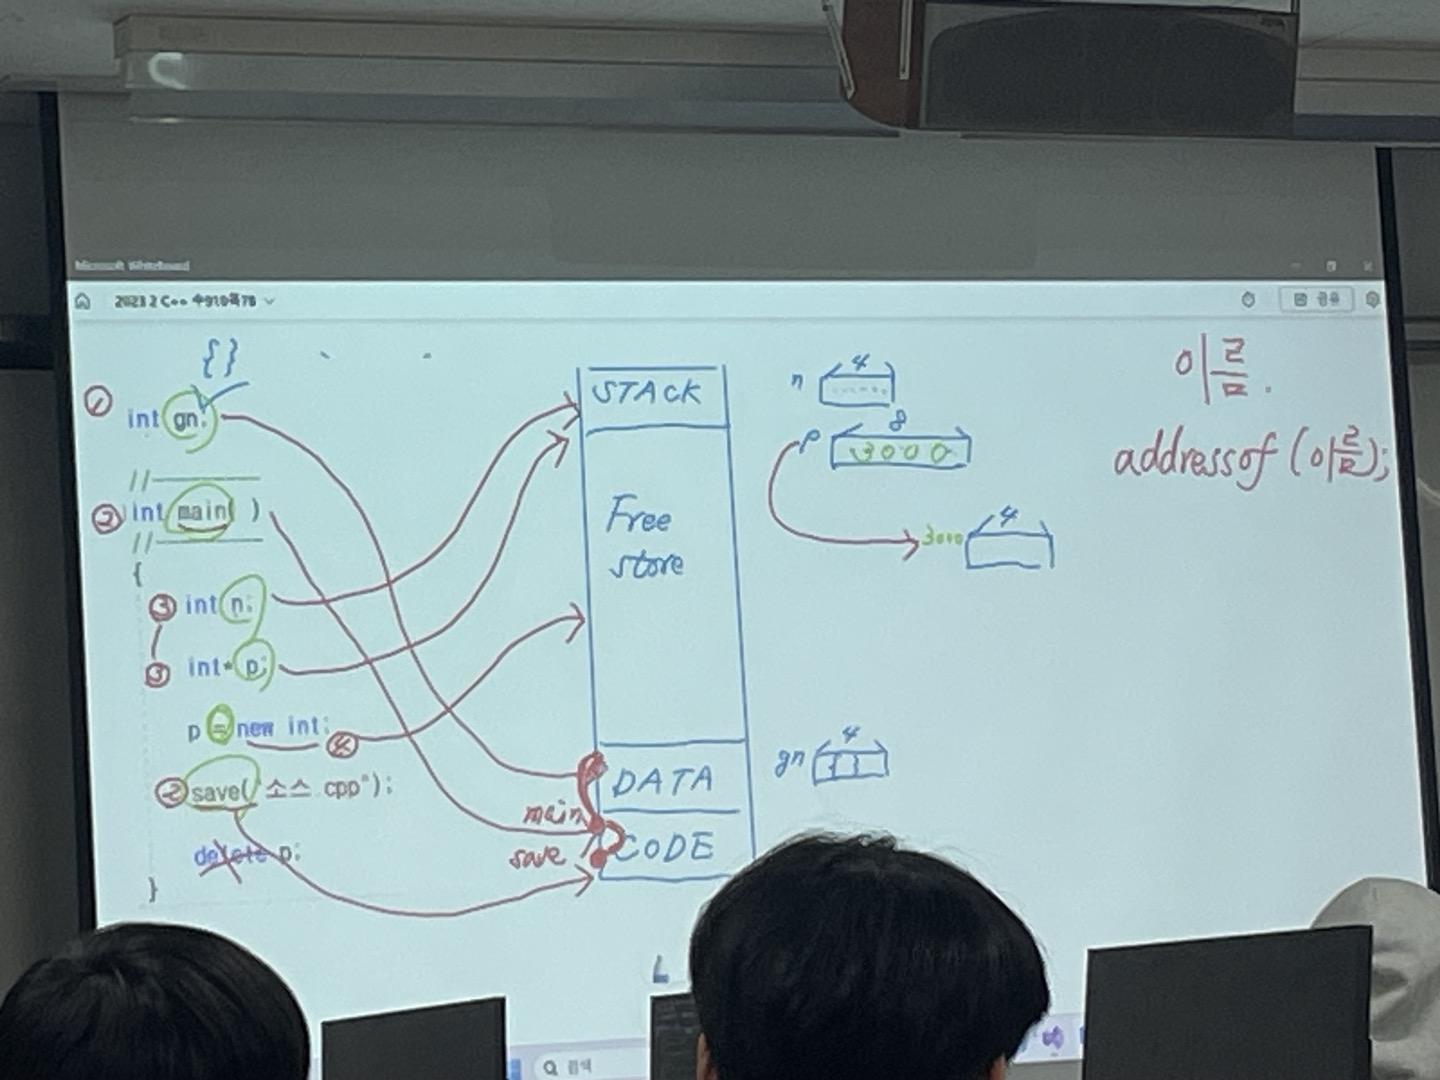 Microsoft Whiteboard
공유
{}
① int gn;
//
② int main( )
//
{
③ int n;
③ int* p;
p = new int; ④
② save("소스.cpp");
delete p;
}
STACK
Free
store
DATA
main
CODE
save
n 4
8
p 3000
3000 4
gn 4
{ }
이름
addressof (이름);
검색